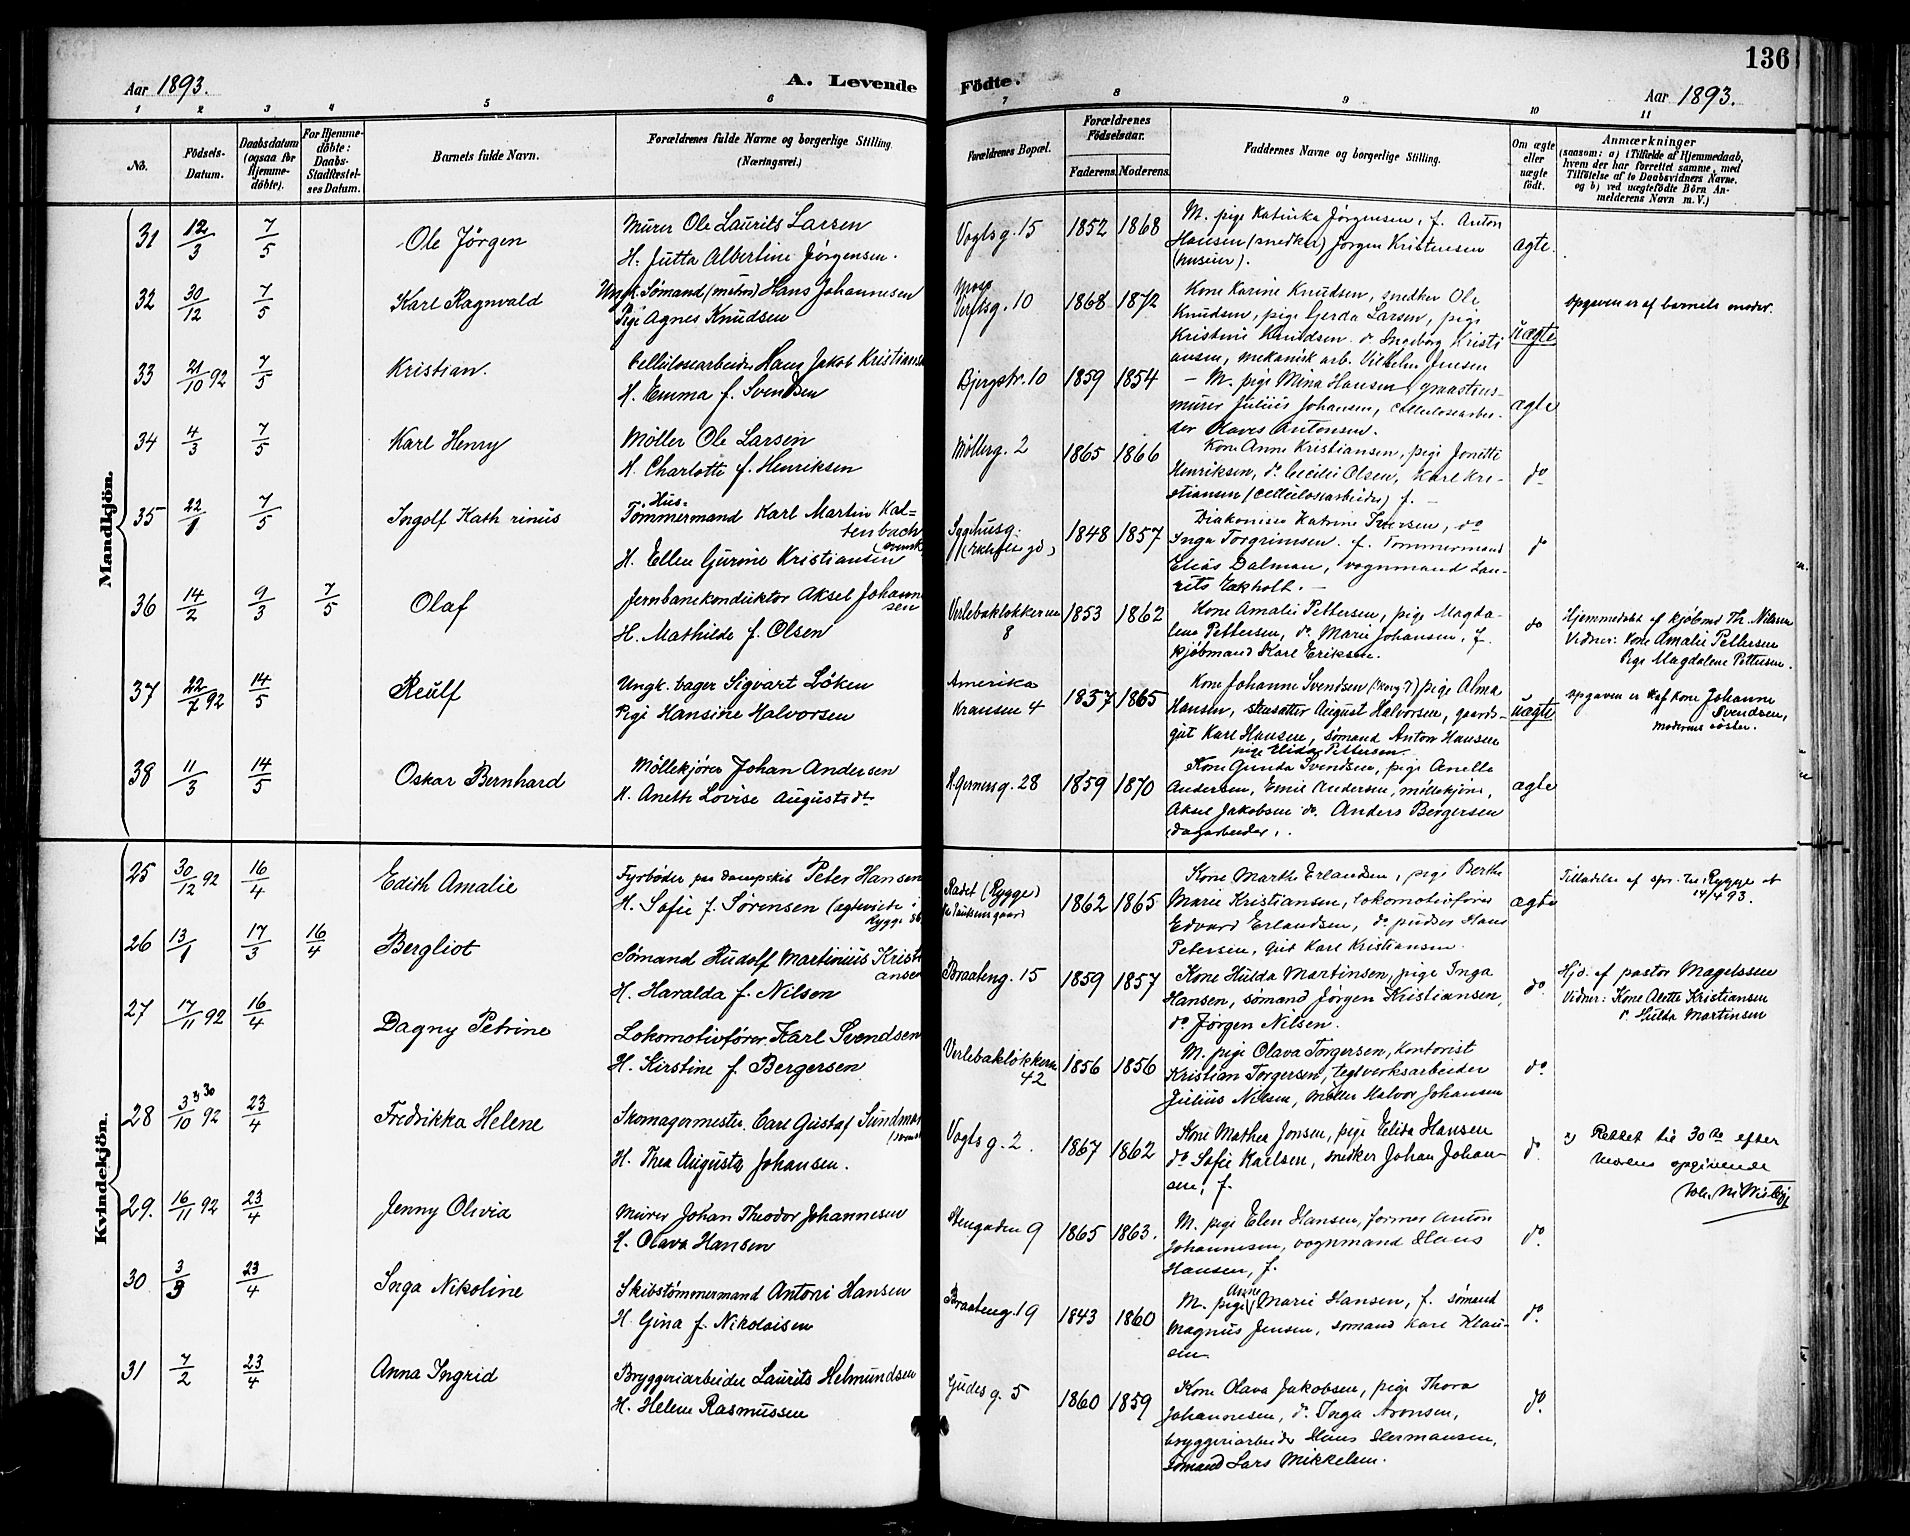 136
Aar 1893.
A. Levende
Födte.
Aar 1893.
1 2 3 4 5 6 7 8 9 10 11
No.
Födsels-Datum.
Daabsdatum (ogsaa for Hjemmedöbte).
For Hjemmedöbte: Daabs-Stadfæstelses Datum.
Barnets fulde Navn.
Forældrenes fulde Navne og borgerlige Stilling.
(Næringsvei.)
Forældrenes Bopæl.
Forældrenes Födselsaar.
Faderens. Moderens.
Faddernes Navne og borgerlige Stilling.
Om ægte eller uægte födt.
Anmærkninger
(saasom: a) i Tilfælde af Hjemmedaab,
hvem der har forrettet samme, med
Tilföielse af to Daabsvidners Navne.
og b) ved uægtefödte Börn An-
melderens Navn m. V.)
Mandkjön.
31 12/3 7/5 Ole Jörgen
Murer Ole Laurits Larsen
H. Jutta Albertine Jörgensen.
Vogtsg. 15 1852 1868
M. pige Katinka Jörgensen, f. Anton
Hansen (snedker) Jörgen Kristensen
(murer).
ægte.
32 30/12 7/5 Karl Ragnvald
Ungk. Sömand (matros) Hans Johannesen
Pige Agnes Knudsen
Moss
Verftsg. 10 1868 1872
Kone Karine Knudsen, snedker Ole
Knudsen, pige Gerda Larsen, pige
Kristine Knudsen do Ingeborg Kristi
ansen, mekanisk arb. Vilhelm Jensen
uægte
opgaven er af barnets moder.
33 21/10 92 7/5 Kristian.
Cellulosearbeider Hans Jakob Kristiansen
H. Emma f. Svendsen
Bjergstr. 10 1859 1854
- M. pige Mina Hansen, graastens-
murer Julius Johansen, cellulosearbei-
der Olaves Antonsen.
ægte
34 4/3 7/5 Karl Henry
Möller Ole Larsen
H. Charlotte f. Henriksen
Möllerg. 2 1865 1866
Kone Anne Kristiansen, pige Jonette
Henriksen, do Cecilie Olsen, Karl Kri-
stiansen (cellulosearbeider) f. -
do
35 22/1 7/5 Ingolf Kathrinus
Hus-
Tömmermand Karl Martin Kal-
tenbach
(svensk)
H. Ellen Gurine Kristiansen
Sygehusg. 1848 1857
Diakonisse Katrine Iversen, do
Inga Torgrimsen. f. Tömmermand
Elias Dalman, vognmand Lau-
rits Eekholt. -
do
36 14/2 9/3 7/5 Olaf
Jernbanekonduktör Aksel Johanne
sen
H. Mathilde f. Olsen
Verlebaklökkerne
8 1853 1862
Kone Amalie Pettersen, pige Magda-
lene Pettersen, do Marie Johansen, f.
kjöbmand Karl Eriksen.
do
Hjemmedöbt af kjöbmd Th. Nilssen
Vidner: Kone Amalie Pettersen
Pige Magdalene Pettersen.
37 22/7 92 14/5 Reulf
Ungk. bager Sigvart Löken
Pige Hansine Halvorsen
Amerika
kransen 4 1857 1865
Kone Johanne Svendsen pige Alma
Hansen, stensætter August Halvorsen, gaards-
gut Karl Hansen, sömand Anton Hansen
pige Elida Pettersen
uægte
opgaven er af kone Johanne
Svendsen,
moderens söster.
38 11/3 14/5 Oskar Bernhard
Möllekjörer Johan Andersen
H. Aneth Lovise Augustsdr.
H. Gernersg. 28 1859 1870
Kone Gunda Svendsen, pige Anette
Andersen, Emil Andersen, möllekjörer,
Aksel Jakobsen do. Anders Bergersen
dagarbeider.
ægte
Kvindekjön.
25 30/12 92 16/4 Edith Amalie
Fyrböder paa dampskib Peter Hansen
H. Sofie f. Sörensen (ægteviede i
Rygge
Radet (Rygge) 1862 1865
Kone Marthe Erlandsen, pige Berthe
Marie Kristiansen, lokomotivförer
Edvard Erlandsen, do pudser Hans
Petersen, gut Karl Kristiansen.
ægte
Tilladelse af spr. til Rygge
14/4 93.
26 13/1 17/3 16/4 Bergliot
Sömand Rudolf Martinius Kristi
ansen
H. Haralda f. Nilsen
Braateng. 15 1859 1857
Kone Hulda Martinsen, pige Inga
Hansen, sömand Jörgen Kristiansen,
do Jörgen Nilsen.
do.
Hjd. af pastor Magelssen
Vidner: Kone Alette Kristiansen
do Hulda Martinsen
27 17/11 92 16/4 Dagny Petrine
Lokomotivförer Karl Svendsen
H. Kirstine f. Bergersen
Verlebaklökkerne
42 1856 1856
M. pige Olava Torgersen, kontorist
Kristian Torgersen, teglverksarbeider
Julius Nilsen, möller Halvor Johansen
do.
28 3/10 92 x) 30 23/4 Fredrikka Helene
Skomagermester Carl Gustaf Sundman
(svensk
H. Thea Augusta Johansen.
Vogtsg. 2. 1867 1862
Kone Mathea Jonsen, pige Elida Hansen
do Sofie Karlsen, snedker Johan Johan-
sen, f.
do.
x) Rettet til 30te efter
Morens opgivende
29. 16/11 92 23/4 Jenny Olivia
Murer Johan Theodor Johannesen
H. Olava Hansen
Stengaden 9 1865 1863.
M. pige Elen Hansen, former Anton
Johannesen, vognmand Hans
Hansen, f.
do.
30 3/3 23/4 Inga Nikoline
Skibstömmermand Antoni Hansen
H. Gina f. Nikolaisen
Braateng. 19 1843 1860
M. pige Anne Marie Hansen, f. sömand
Magnus Jensen, sömand Karl Klau-
sen.
do.
31 7/2 23/4 Anna Ingrid
Bryggeriarbeider Laurits Helmundsen
H. Helene Rasmussen
Gudesg. 5 1860 1859
Kone Olava Jakobsen, pige Thora
Johannesen, do. Inga Aronsen,
bryggeriarbeider Hans Hermansen,
sömand Lars Mikkelsen.
do.